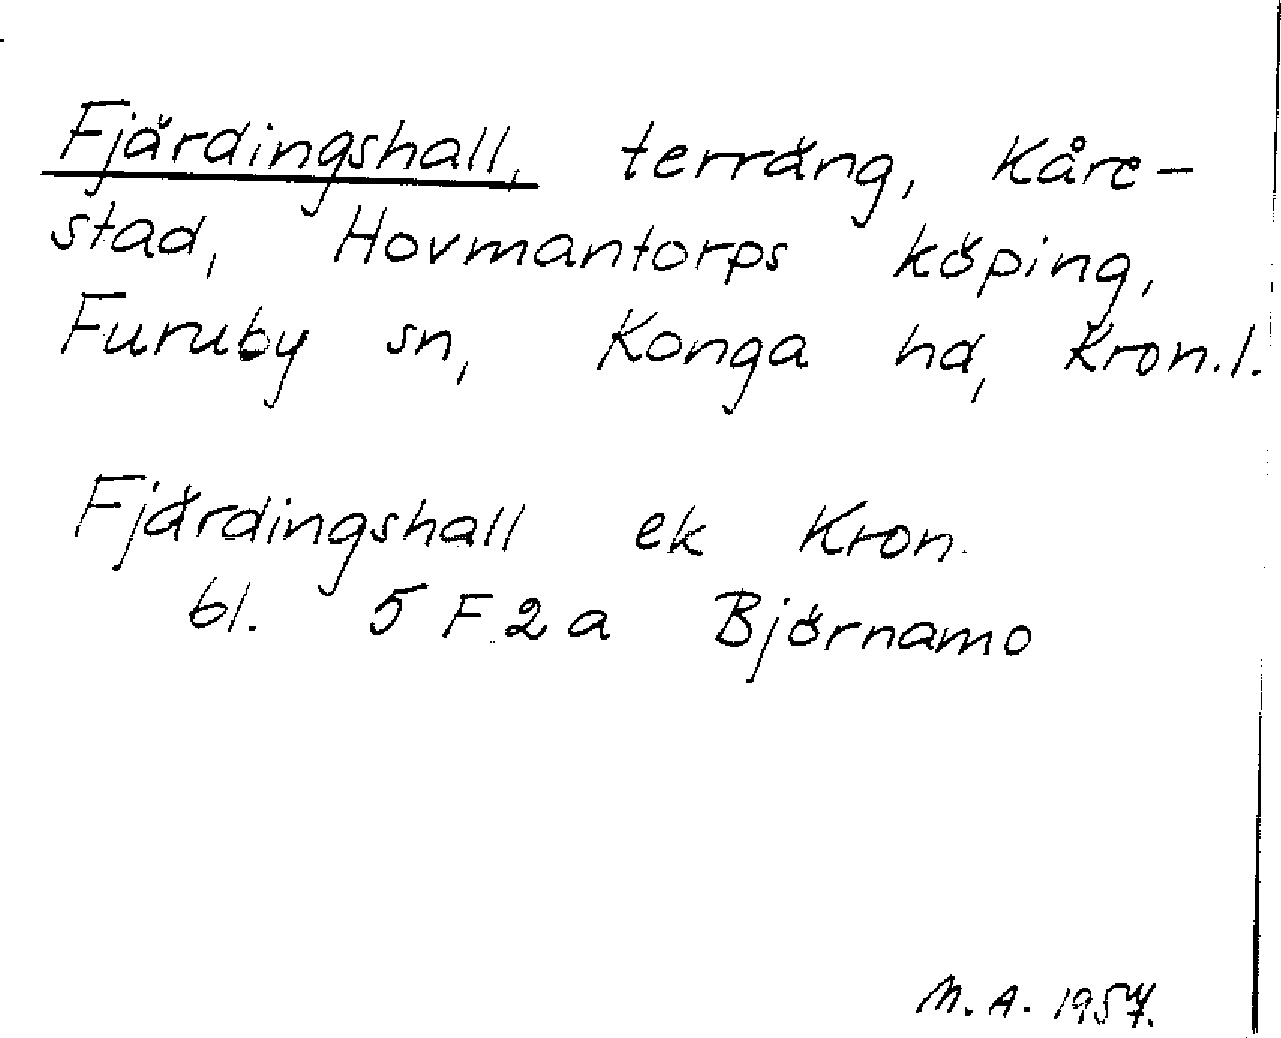 Fjärdingshall, terräng, Kåre-
stad, Hovmantorps köping,
Furuby sn, Konga hd, Kron.l.
Fjärdingshall ek Kron.
bl. 5 F 2 a Björnamo
M. A. 1957.